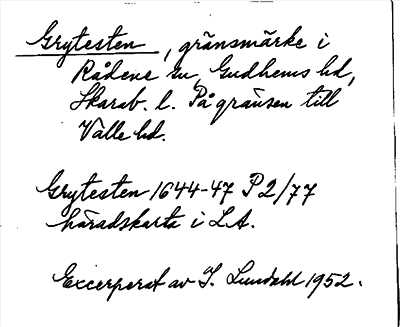 Grytesten, gränsmärke i
Rådene sn, Gudhems hd,
Skarab. l. På gränsen till
Valle hd.
Grytesten 1644-47 P2/77
häradskarta i L.A.
Excerperat av I. Lundahl 1952.